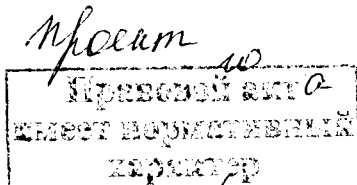 Проект
Правовой акт
имеет нормативный
характер